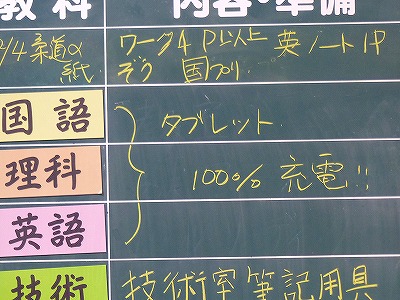 教科 内容・準備
2/4 柔道α ワーク4P以上 英ノート1P
紙 ぞう 国プリ
国語 タブレット
理科 100% 充電!!
英語
技術 技術室筆記用具